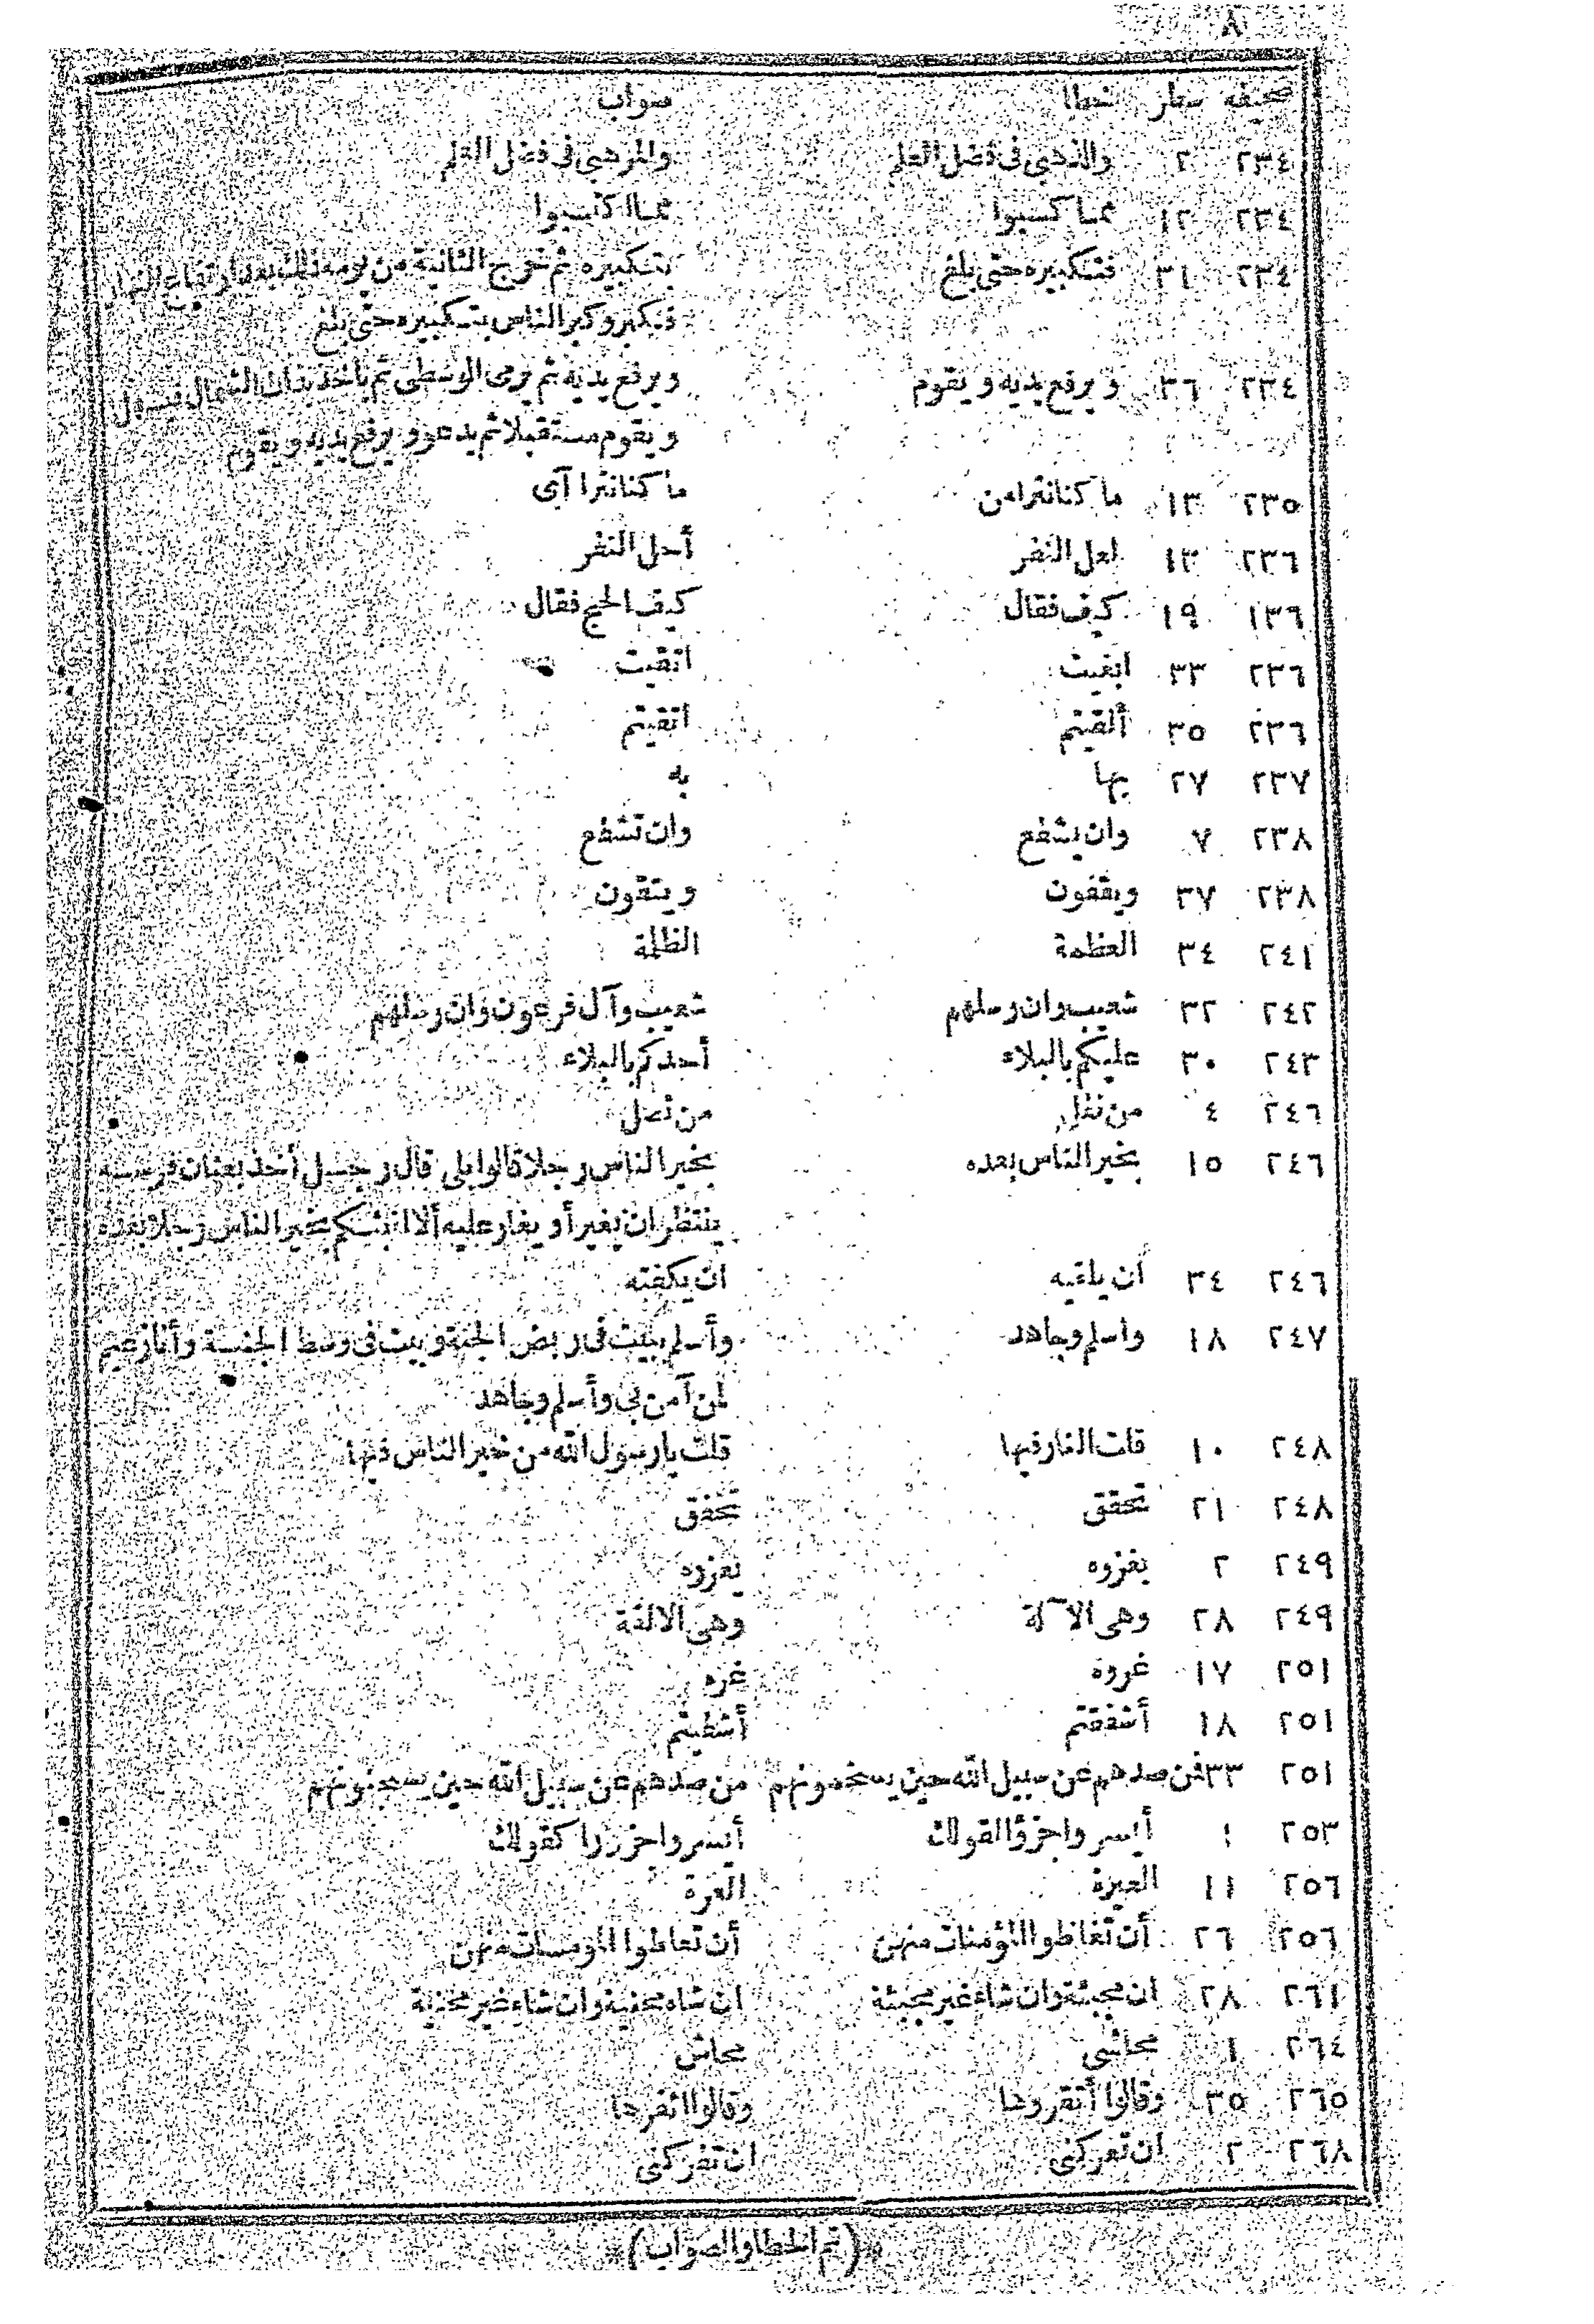 ٨
صحيفه سطر خطا صواب
٢٣٤ ٢ والذهبى فى فضل العلم والمرهبى فى فضل العلم
٢٣٤ ١٢ مما كسبوا مما اكتسبوا
٢٣٤ ٣١ فتكبيره حتى بلغ بتكبيره ثم خرج الثانية من يومه ذلك بعد ارتفاع النهار
فكبر وكبر الناس بتكبيره حتى بلغ
٢٣٤ ٣٦ ويرفع يديه ويقوم ويرفع يديه ثم يرمى الوسطى ثم يأخذ بذات الشمال فيسهل
ويقوم مستقبلا ثم يدعو ويرفع يديه ويقوم
٢٣٥ ١٣ ما كنا نترا من ما كنا نترا آى
٢٣٦ ١٣ لعل النفر أحل النفر
١٣٦ ١٩ كيف فقال كيف الحج فقال
٢٣٦ ٣٣ ابغيت اتقيت
٢٣٦ ٣٥ ألقيتم اتقيتم
٢٣٧ ٢٧ بها به
٢٣٨ ٧ وان يشفع وان تشفع
٢٣٨ ٣٧ ويقفون ويتقون
٢٤١ ٣٤ العظمة الظلمة
٢٤٢ ٣٢ شعيب وان رسلهم شعيب وآل فرعون وان رسلهم
٢٤٣ ٣٠ عليكم بالبلاء أحدكم بالبلاء
٢٤٦ ٤ من نقل من نصل
٢٤٦ ١٥ بخير الناس بعده بخير الناس رجلا قالوا بلى قال رجل أخذ بعنان فرسه
ينتظر ان يغير أو يغار عليه ألا انبئكم بخير الناس رجلا بعده
٢٤٦ ٣٤ أن يلقيه ان يكفته
٢٤٧ ١٨ واسلم وجاهد وأسلم ببيت فى ربض الجنة وبيت فى وسط الجنة وأنا زعيم
لمن آمن بى وأسلم وجاهد
٢٤٨ ١٠ قلت النار فيها قلت يا رسول الله من خير الناس فيها
٢٤٨ ٢١ تحقق تخفق
٢٤٩ ٢ يغزوه يعزوه
٢٤٩ ٢٨ وهى الآلة وهى الالفة
٢٥١ ١٧ غروه غره
٢٥١ ١٨ أشفقتم أشطيتم
٢٥١ ٣٣ فمن صدهم عن سبيل الله حين من صدهم عن سبيل الله حين يسحبونهم
٢٥٣ ١ أيسر القولك أيسر كقولك
٢٥٦ ١١ العيزة الغرة
٢٥٦ ٢٦ أن تغاظوا المؤمنات منهن أن تعاطوا المومسات منهن
٢٦١ ٢٨ ان مجبئة وان شاء غير مجبئة ان شاء مجبية وان شاء غير مجبية
٢٦٤ ١ محاشى محاش
٢٦٥ ٣٥ وقالوا أتقروحا وقالوا
٢٦٨ ٢ ان تعركنى ان تفركنى
(تم الخطا والصواب)